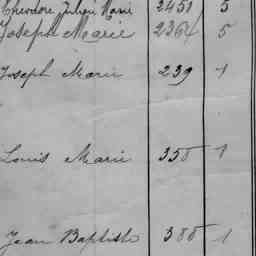 Théodore Julien Marie 2451 5
Joseph Marie 2364 5
Joseph Marie 239 1
Louis Marie 355 1
Jean Baptiste 385 1